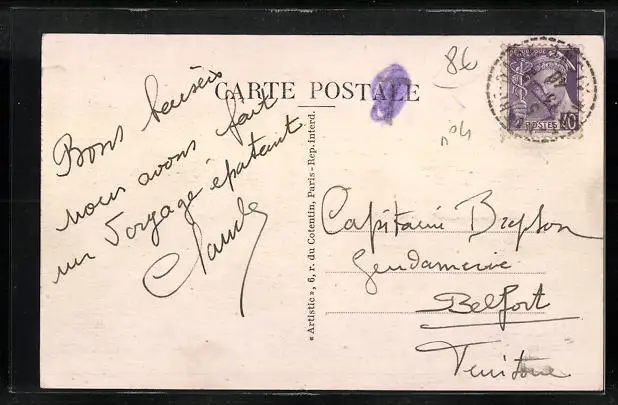 CARTE POSTALE
Bons baisers
nous avons fait
un Voyage épatant
Claude
« Artistic », 6, r. du Cotentin, Paris - Rep. interd.
86
POSTES
Capitaine
Gendarmerie
Belfort
Territoire